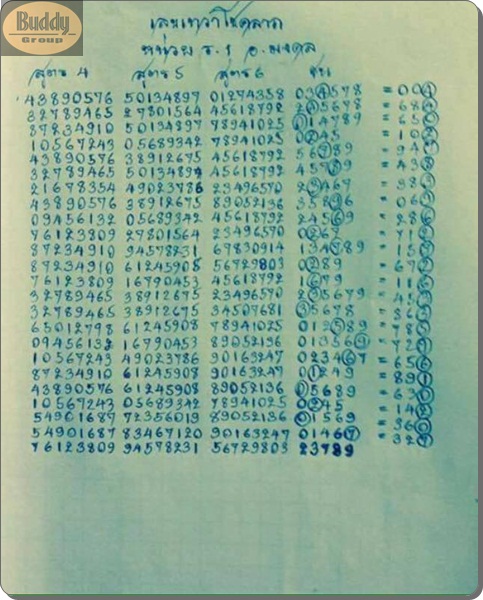 Buddy
Group
เลขเทวาโชคลาภ
หน่วย ร.1 อ.มงคล
สูตร 4 สูตร 5 สูตร 6 ชน
43890576 50134897 01274358 034578 = 004
32789465 27801564 45618792 245678 = 684
87234910 50134897 78941025 014789 = 650
10567243 05689342 78941025 0245 = 102
43890576 38912675 45618792 56789
32789465 50134897 45618792 45789 = 438
21678354 49023786 23496570 23467 = 383
43890576 38912675 89052136 = 063
09456132 05689342 45618792 24569 = 286
76123809 27801564 23496570 0267
87234910 94578231 67830914 134789
87234910 61245908 56729803 0289
76123809 16790453 45618792 1679
32789465 38912675 23496570 235679
32789465 38912675 34507681 35678
65012798 61245908 78941025 012589
09456132 16790453 89052136 013569
10567243 49023786 90163247 023467
87234910 61245908 90163247 01249
43890576 61245908 89052136 05689
10567243 05689342 78941025 0245
54901687 72356019 89052136 01569
54901687 83467120 90163247 01467
76123809 94578231 56729803 23789